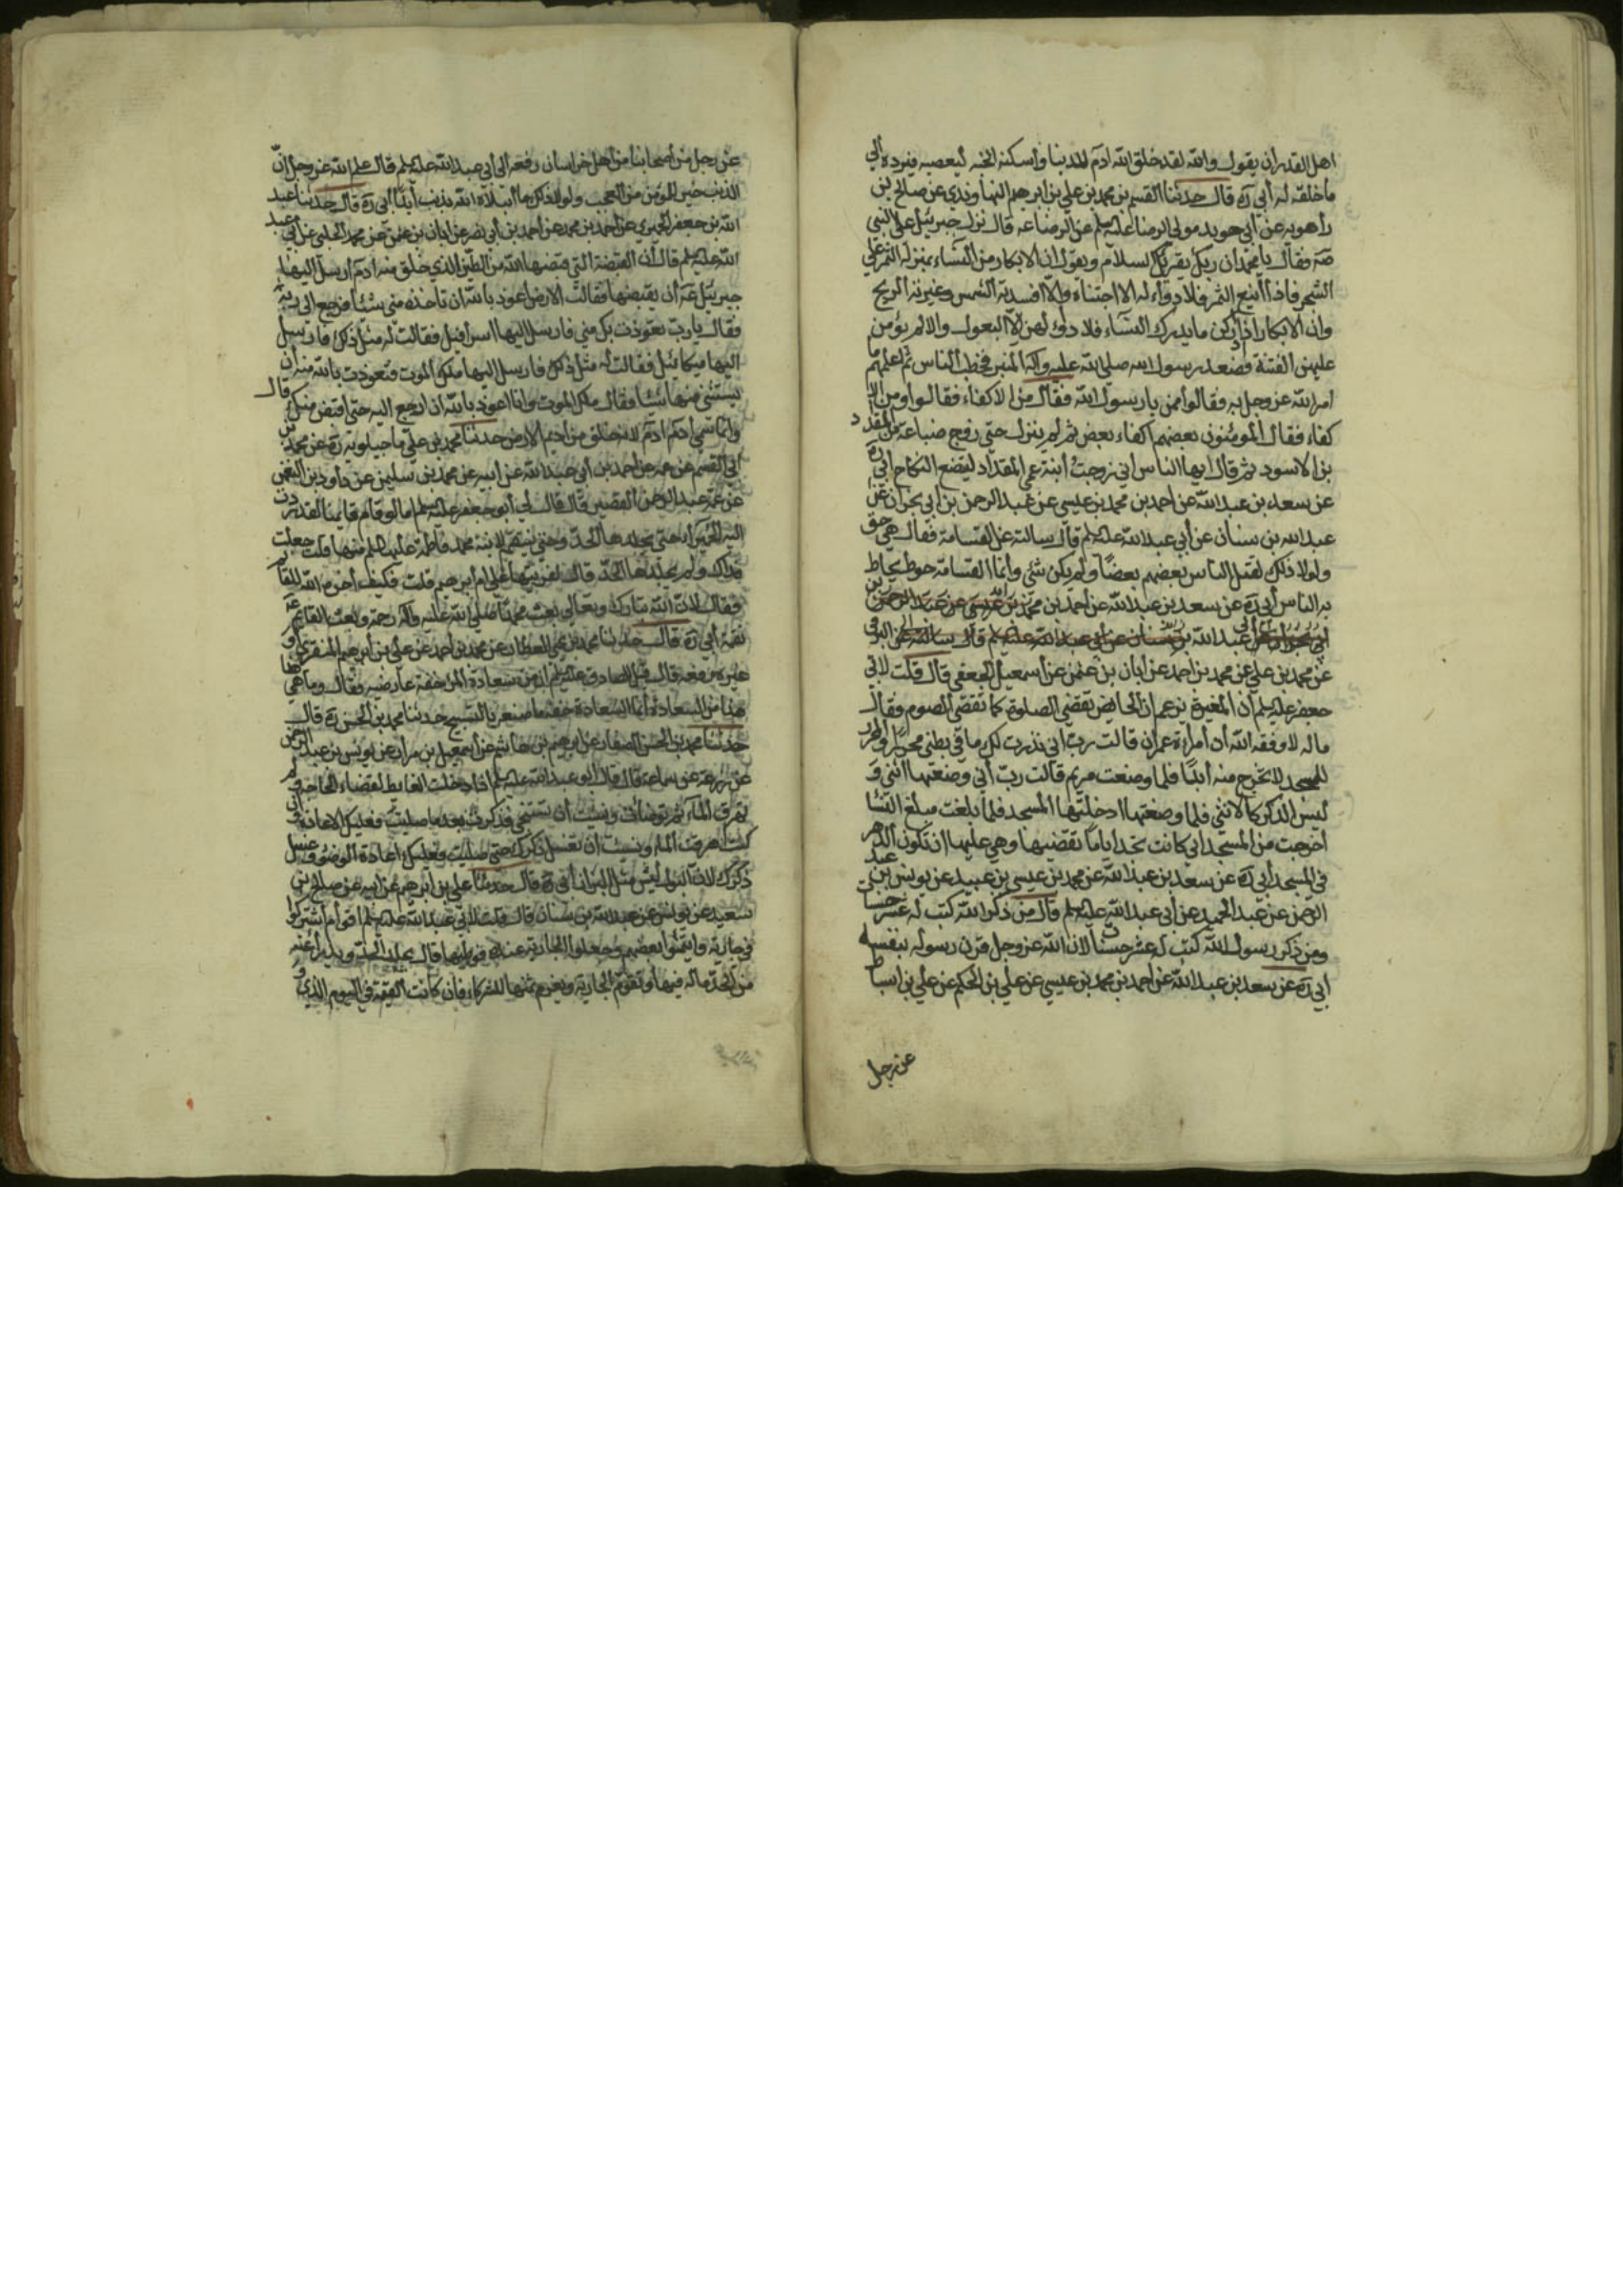 اهل القدر ان يقول والله لقد خلق الله ادم للدنيا واسكنه الجنه ليعصيه فيرده الى
ما خلقه له أبي ره قال حدثنا القسم بن محمد بن علي بن ابرهيم النهاوندي عن صالح بن
راهويه عن أبي حويد مولى الرضا عليه السلم عن الرضا عه قال نزل جبرئيل على النبي
صه فقال يا محمد ان ربك يقرئك السلام ويقول ان الابكار من النساء بمنزله الثمر على
الشجر فاذا أينع الثمر فلا دواء له الا اجتناءه والا افسدته الشمس وغيرته الريح
وان الابكار اذا ادركن ما يدرك النساء فلا دواء لهن الا البعول والا لم يؤمن
عليهن الفتنة فصعد رسول الله صلى الله عليه وآله المنبر فخطب الناس ثم اعلمهم ما
امر الله عز وجل به فقالوا ممن يا رسول الله فقال من الاكفاء فقالوا ومن الا
كفاء فقال المومنون بعضهم اكفاء بعض ثم لم ينزل حتى زوج ضباعة من المقداد
بن الاسود ثم قال ايها الناس اني زوجت ابنة عمي المقداد ليتضع النكاح أبي ره
عن سعد بن عبد الله عن احمد بن محمد بن عيسى عن عبد الرحمن بن أبي نجران عن
عبد الله بن سنان عن أبي عبد الله عليه السلم قال سالته عن القسامة فقال هي حق
ولولا ذلك لقتل الناس بعضهم بعضا ولم يكن شئ وأنما القسامة حوط يحاط
به الناس أبي ره عن سعد بن عبد الله عن احمد بن محمد بن عيسى عن عبد الرحمن بن
أبي نجران عن عبد الله بن سنان عن أبي عبد الله عليه السلم قال سالته عن البرقي
عن محمد بن علي عن محمد بن احمد عن أبان بن عثمن عن أسمعيل الجعفي قال قلت لابي
جعفر عليه السلم أن المغيرة يزعم ان الحايض تقضي الصلوة كما تقضي الصوم فقال
ما له لا وفقه الله أن أمراءة عمران قالت رب اني نذرت لك ما في بطني محررا والمحرر
للمسجد لا يخرج منه أبدا فلما وضعت مريم قالت رب أني وضعتها انثى و
ليس الذكر كالانثى فلما وضعتها ادخلتها المسجد فلما بلغت مبلغ النسا
أخرجت من المسجد انى كانت تجد اياما تقضيها وهي عليها ان تكون الدهر
في المسجد أبي ره عن سعد بن عبد الله عن محمد بن عيسى بن عبيد عن يونس بن عبد
الرحمن عن عبد الحميد عن أبي عبد الله عليه السلم قال من ذكر الله كتب له عشر حسنات
ومن ذكر رسول الله كتب له عشر حسنات لان الله عز وجل قرن رسوله بنفسه
ابي ره عن سعد بن عبد الله عن احمد بن محمد بن عيسى عن علي بن الحكم عن علي بن اسباط
عن رجل
عن رجل من أصحابنا من أهل خراسان رفعه الى أبي عبد الله عليه السلم قال علم الله عز وجل أن
الذنب خير للمؤمن من العجب ولولا ذلك ما ابتلاه الله بذنب أبدا أبي ره قال حدثنا عبد
الله بن جعفر الحميري عن احمد بن محمد عن احمد بن أبي نصر عن ابان بن عثمن عن محمد الحلبي عن أبي عبد
الله عليه السلم قال أن القبضة التي قبضها الله من الطين الذي خلق منه ادم أرسل اليها
جبرئيل عه أن يقبضها فقالت الارض اعوذ بالله ان تاخذ مني شئا فرجع الى ربه
فقال يا رب تعوذت بك مني فارسل اليها اسرافيل فقالت له مثل ذلك فارسل
اليها ميكائيل فقالت له مثل ذلك فارسل اليها ملك الموت فتعوذت بالله منه أن
يستثني منها شئا فقال ملك الموت وانا اعوذ بالله ان ارجع اليه حتى اقبض منك قال
وانما سمي ادم ادم لانه خلق من اديم الارض حدثنا محمد بن علي ماجيلويه ره عن محمد بن
أبي القسم عن عمه عن احمد بن أبي عبد الله عن أبيه عن محمد بن سليمن عن داود بن النعمن
عن عبد الرحمن القصير قال قال لي أبو جعفر عليه السلم اما لو قام قايمنا لقد ردت
اليه الحميراء حتى يجلدها الحد وحتى ينتقم لابنة محمد فاطمة عليها السلم منها قلت جعلت
فداك ولم يجلدها الحد قال لفريتها على ام ابرهيم قلت فكيف أخره الله للقائم
فقال لان الله تبارك وتعالى بعث محمدا صلى الله عليه وآله رحمة وبعث القايم عه
نقمة أبي ره قال حدثنا محمد بن يحيى العطار عن محمد بن احمد عن علي بن ابرهيم المنقري أو
غيره رفعه قال قيل للصادق عليه السلم ان من سعادة المرء خفة عارضيه فقال وما في هذا
هذا من السعادة أنما السعادة خفة ماضغيه بالتسبيح حدثنا محمد بن الحسن ره قال
حدثنا محمد بن الحسن الصفار عن ابرهيم بن هاشم عن أسمعيل بن مرار عن يونس بن عبد الرحمن
عن زرعة عن سماعة قال قال أبو عبد الله عليه السلم اذا دخلت الغايط لقضاء الحاجة ولم
تهرق الماء ثم توضأت ونسيت أن تستنجي فذكرت بعد ما صليت فعليك الاعادة وان
كنت اهرقت الماء ونسيت ان تغسل ذكرك حتى صليت فعليك اعادة الوضوء وغسل
ذكرك لان البول ليس مثل البراز أبي ره قال حدثنا علي بن ابرهيم عن ابيه عن صالح بن
سعيد عن يونس عن عبد الله بن سنان قال قلت لابي عبد الله عليه السلم قوم اشتركوا
في جارية وائتمنوا بعضهم وجعلوا الجارية عنده فوطيها قال يجلد الحد ويدرا عنه
من الحد ماله فيها وتقوم الجارية ويغرم ثمنها للشركاء فان كانت القيمة في اليوم الذي